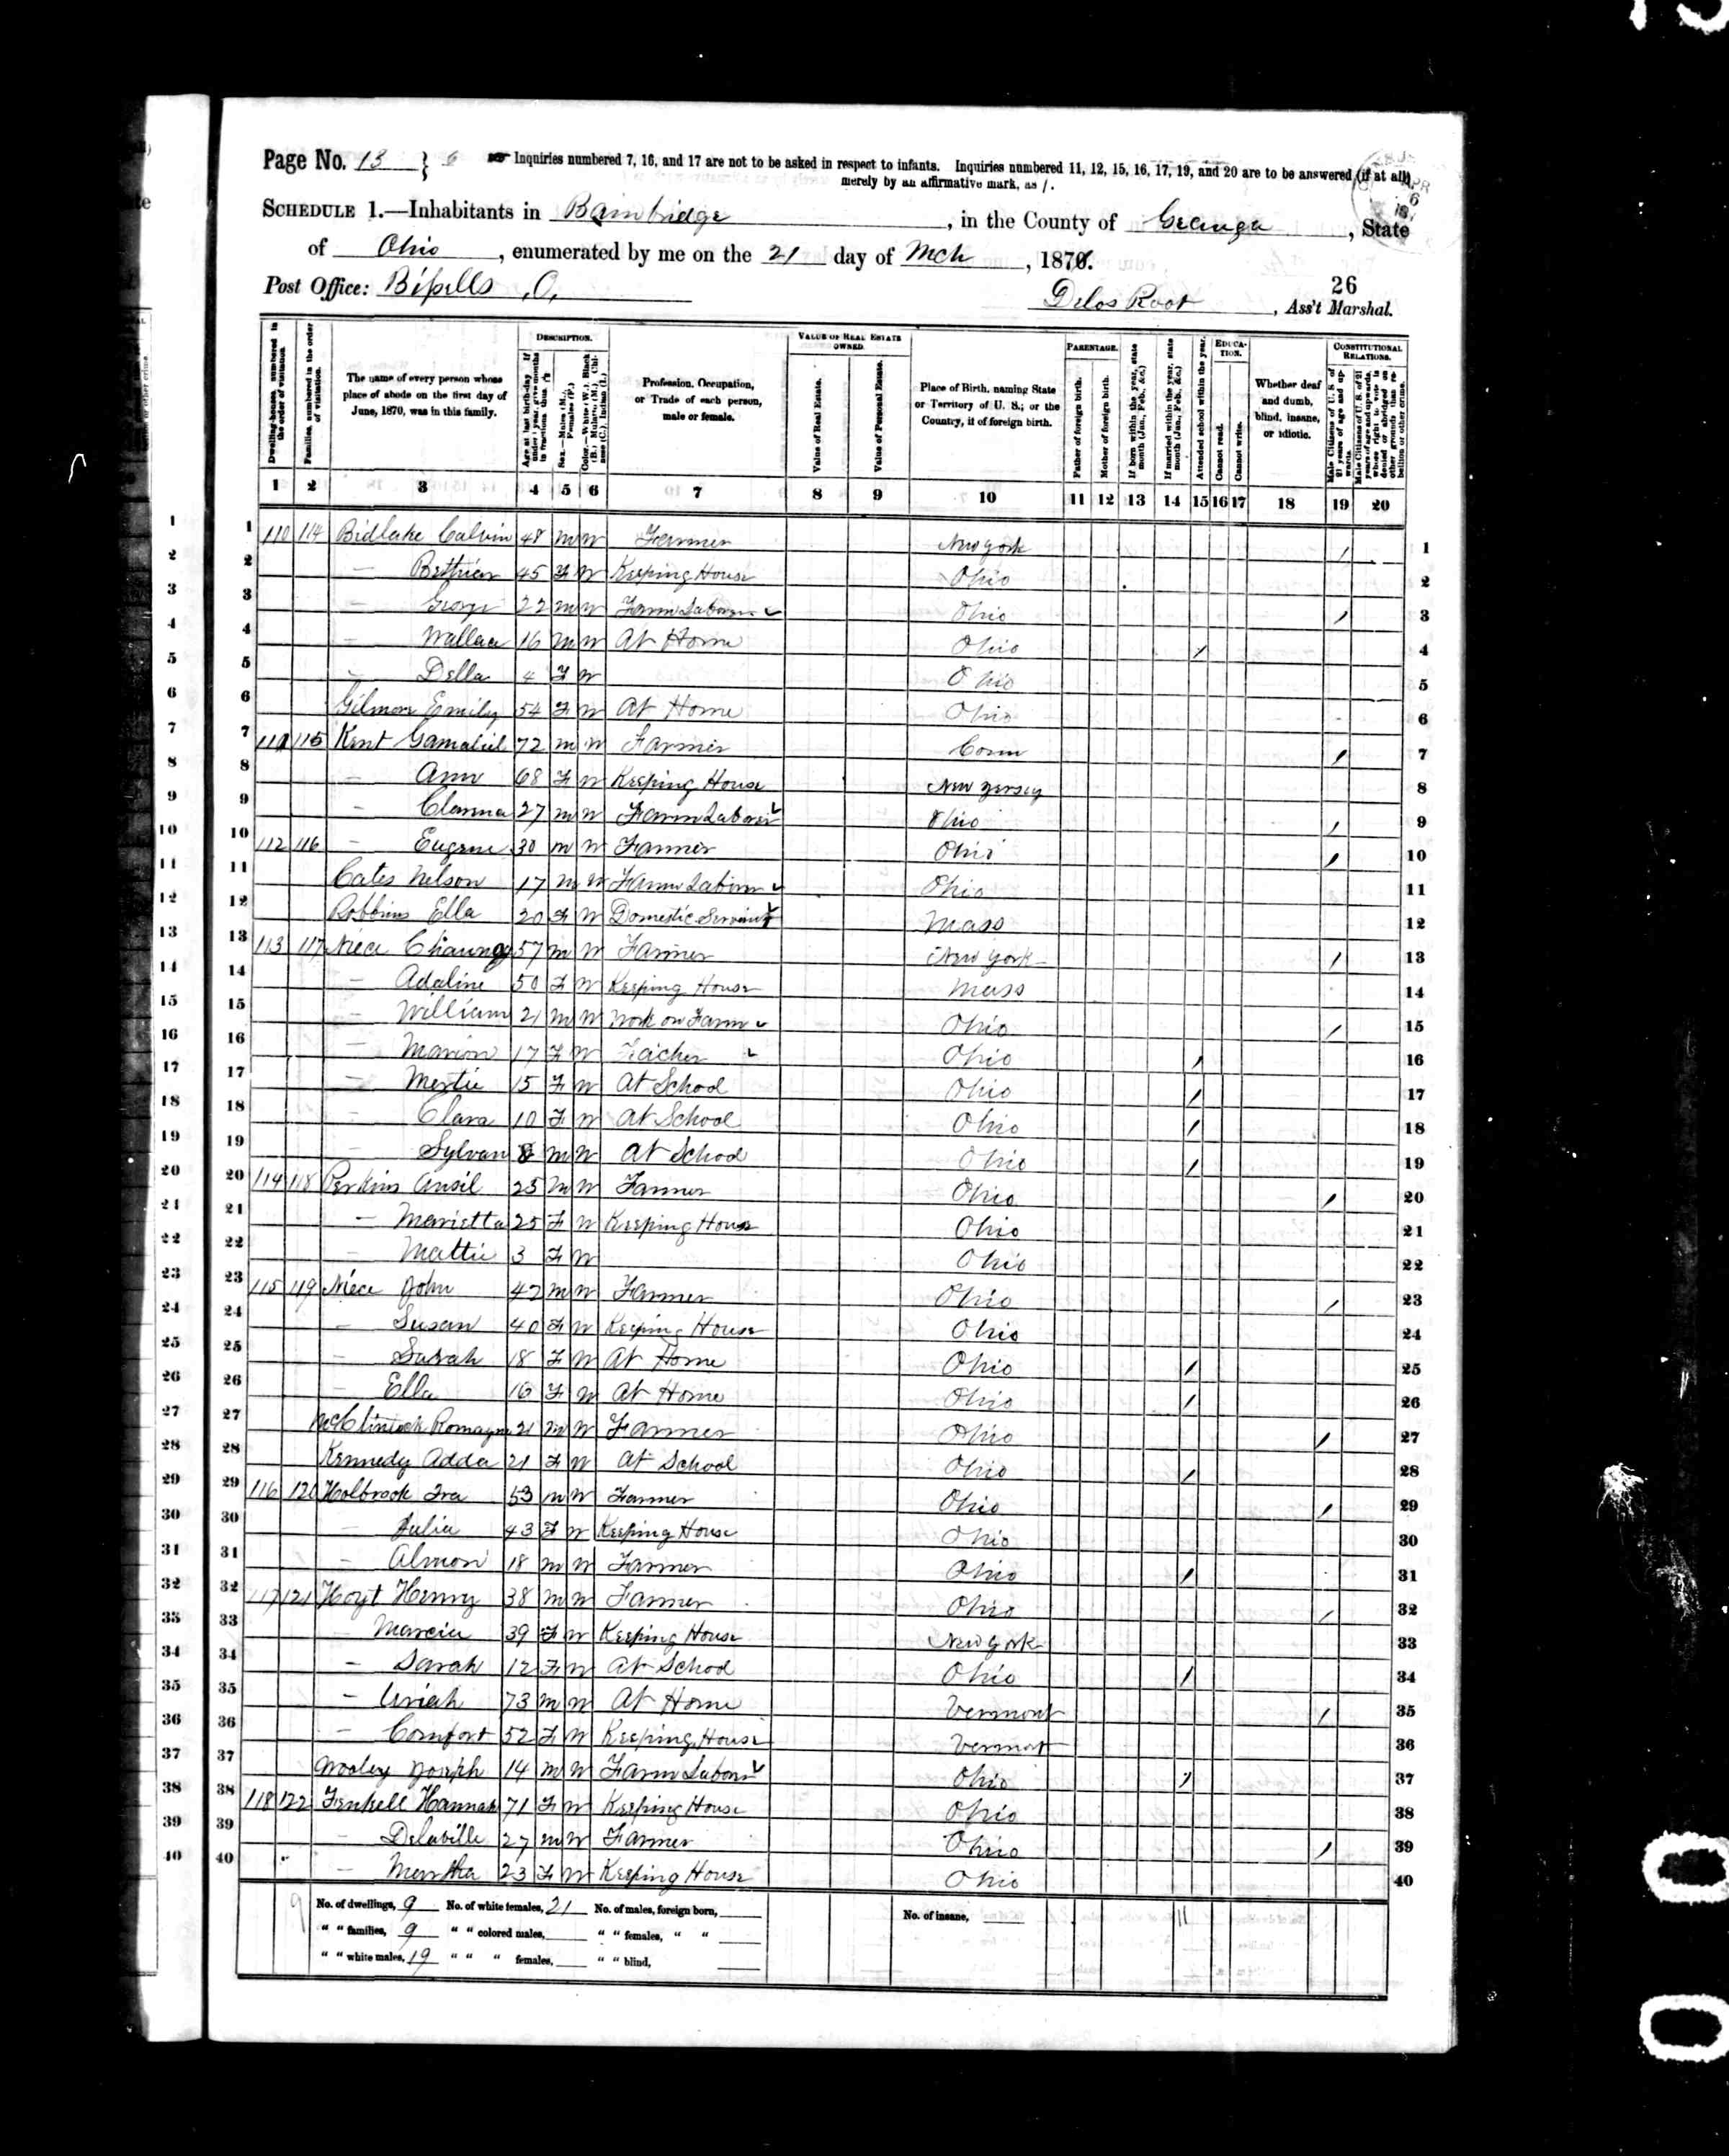 Page No. 13 } 6 Inquiries numbered 7, 16, and 17 are not to be asked in respect to infants. Inquiries numbered 11, 12, 15, 16, 17, 19, and 20 are to be answered (if at all)
merely by an affirmative mark, as /.
SCHEDULE 1.—Inhabitants in Bainbridge, in the County of Geauga, State
of Ohio, enumerated by me on the 21 day of Mch, 187
Post Office: Bissells, O.
26
Delos Root, Ass't Marshal.
DESCRIPTION. VALUE OF REAL ESTATE OWNED. PARENTAGE. EDUCATION. CONSTITUTIONAL RELATIONS.
Dwelling-houses, numbered in the order of visitation.
Families, numbered in the order of visitation.
The name of every person whose place of abode on the first day of June, 1870, was in this family.
Age at last birth-day. If under 1 year, give months in fractions, thus, 3/12
Sex.—Males (M.), Females (F.)
Color.—White (W.), Black (B.), Mulatto (M.), Chinese (C.), Indian (I.)
Profession, Occupation, or Trade of each person, male or female.
Value of Real Estate.
Value of Personal Estate.
Place of Birth, naming State or Territory of U. S.; or the Country, if of foreign birth.
Father of foreign birth.
Mother of foreign birth.
If born within the year, state month (Jan., Feb., &c.)
If married within the year, state month (Jan., Feb., &c.)
Attended school within the year.
Cannot read.
Cannot write.
Whether deaf and dumb, blind, insane, or idiotic.
Male Citizens of U. S. of 21 years of age and upwards.
Male Citizens of U. S. of 21 years of age and upwards, whose right to vote is denied or abridged on other grounds than rebellion or other crime.
1 2 3 4 5 6 7 8 9 10 11 12 13 14 15 16 17 18 19 20
1 110 114 Bidlake Calvin 48 M W Farmer New York / 1
2 — Bethier 45 F W Keeping House Ohio 2
3 — George 22 M W Farm Laborer Ohio / 3
4 — Wallace 16 M W At Home Ohio / 4
5 — Della 4 F W Ohio 5
6 Gilmore Emily 54 F W At Home Ohio 6
7 111 115 Kent Gamaliel 72 M W Farmer Conn / 7
8 — Ann 68 F W Keeping House New Jersey 8
9 — 27 M W Farm Laborer Ohio / 9
10 112 116 — Eugene 30 M W Farmer Ohio / 10
11 Cates Nelson 17 M W Farm Laborer Ohio 11
12 Robbins Ella 20 F W Domestic Servant Mass 12
13 113 117 Niece Chauncy 57 M W Farmer New York / 13
14 — Adaline 50 F W Keeping House Mass 14
15 — William 21 M W Work on Farm Ohio / 15
16 — Marion 17 F W Teacher Ohio / 16
17 — Mertie 15 F W At School Ohio / 17
18 — Clara 10 F W At School Ohio / 18
19 — Sylvan 8 M W At School Ohio / 19
20 114 118 Perkins Ansil 25 M W Farmer Ohio / 20
21 — Marietta 25 F W Keeping House Ohio 21
22 — Mattie 3 F W Ohio 22
23 115 119 Niece John 42 M W Farmer Ohio / 23
24 — Susan 40 F W Keeping House Ohio 24
25 — Sarah 18 F W At Home Ohio / 25
26 — Ella 16 F W At Home Ohio / 26
27 McClintock Romayn 21 M W Farmer Ohio / 27
28 Kennedy Adda 21 F W At School Ohio / 28
29 116 120 Holbrook Ira 53 M W Farmer Ohio / 29
30 — Julia 43 F W Keeping House Ohio 30
31 — Almon 18 M W Farmer Ohio / 31
32 117 121 Hoyt Henry 38 M W Farmer Ohio / 32
33 — Marcia 39 F W Keeping House New York 33
34 — Sarah 12 F W At School Ohio / 34
35 — Uriah 73 M W At Home Vermont / 35
36 — Comfort 52 F W Keeping House Vermont 36
37 Wooley Joseph 14 M W Farm Laborer Ohio / 37
38 118 122 Fenkell Hannah 71 F W Keeping House Ohio 38
39 — Delaville 27 M W Farmer Ohio / 39
40 — Martha 23 F W Keeping House Ohio 40
9 No. of dwellings, 9 No. of white females, 21 No. of males, foreign born, No. of insane, 11
" " families, 9 " " colored males, " " females, " "
" " white males, 19 " " " females, " " blind,